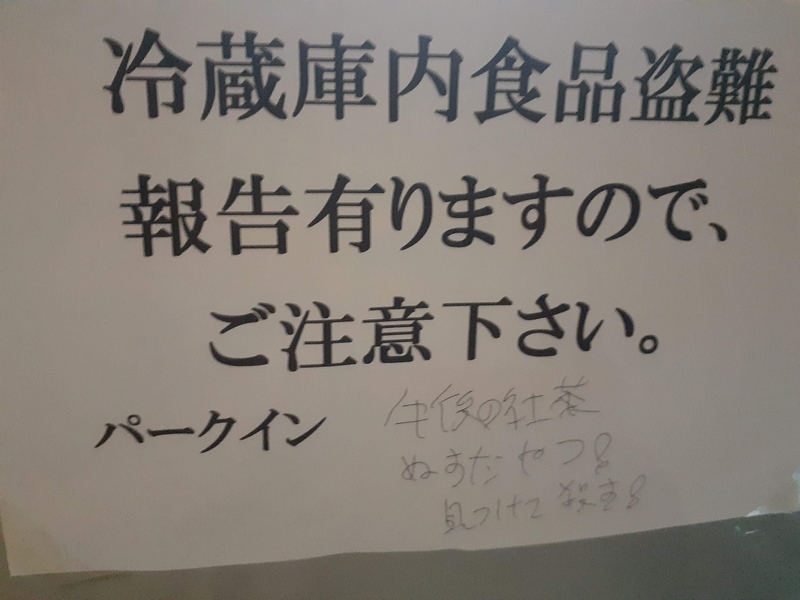 冷蔵庫内食品盗難
報告有りますので、
ご注意下さい。
パークイン
午後の紅茶
ぬすたやつ
見つけて殺す